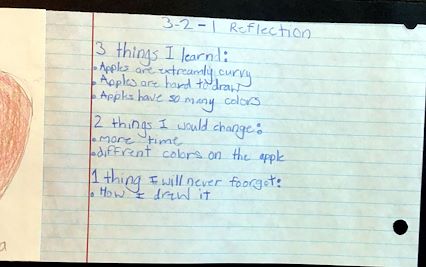 3-2-1 Reflection
3 things I learnd:
• Apples are extreamly curvy
• Apples are hard to draw
• Apples have so many colors
2 things I would change:
• more time
• diffrent colors on the apple
1 thing I will never foorgot:
• How I drew it
a